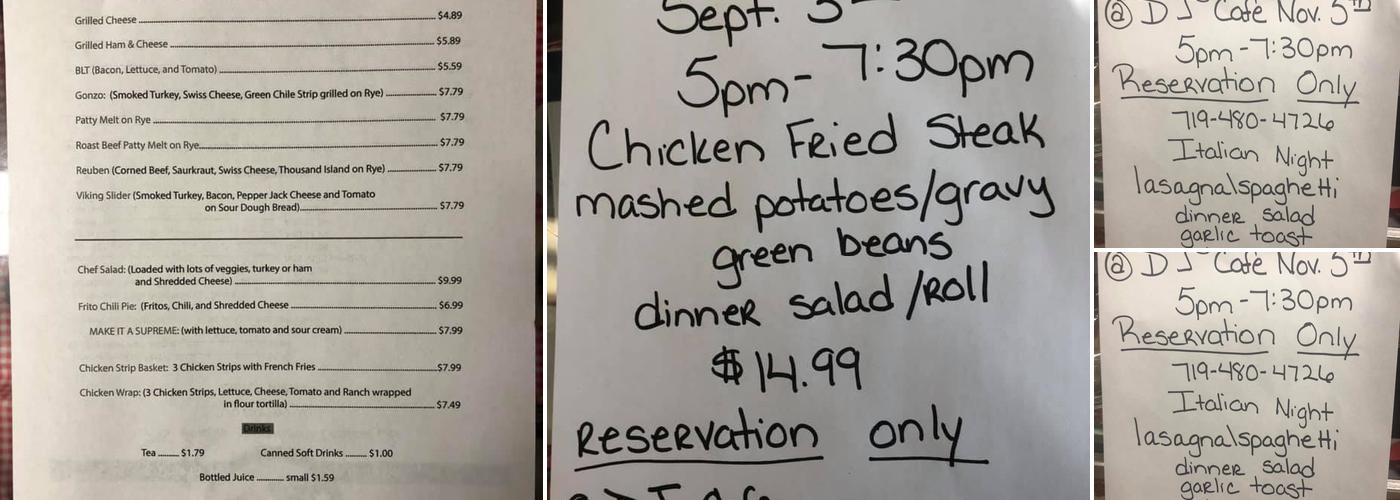 Grilled Cheese $4.89
Grilled Ham & Cheese $5.89
BLT (Bacon, Lettuce, and Tomato) $5.59
Gonzo: (Smoked Turkey, Swiss Cheese, Green Chile Strip grilled on Rye) $7.79
Patty Melt on Rye $7.79
Roast Beef Patty Melt on Rye $7.79
Reuben (Corned Beef, Saurkraut, Swiss Cheese, Thousand Island on Rye) $7.79
Viking Slider (Smoked Turkey, Bacon, Pepper Jack Cheese and Tomato
on Sour Dough Bread) $7.79
Chef Salad: (Loaded with lots of veggies, turkey or ham
and Shredded Cheese) $9.99
Frito Chili Pie: (Fritos, Chili, and Shredded Cheese $6.99
MAKE IT A SUPREME: (with lettuce, tomato and sour cream) $7.99
Chicken Strip Basket: 3 Chicken Strips with French Fries $7.99
Chicken Wrap: (3 Chicken Strips, Lettuce, Cheese, Tomato and Ranch wrapped
in flour tortilla) $7.49
Drinks
Tea $1.79 Canned Soft Drinks $1.00
Bottled Juice small $1.59
Sept.
5pm- 7:30pm
Chicken Fried Steak
mashed potatoes/gravy
green beans
dinner salad/Roll
$14.99
Reservation only
@ DJ's Café Nov. 5th
5pm-7:30pm
Reservation Only
719-480-4726
Italian Night
lasagna\spaghetti
dinner salad
garlic toast
@ DJ's Café Nov. 5th
5pm-7:30pm
Reservation Only
719-480-4726
Italian Night
lasagna\spaghetti
dinner salad
garlic toast